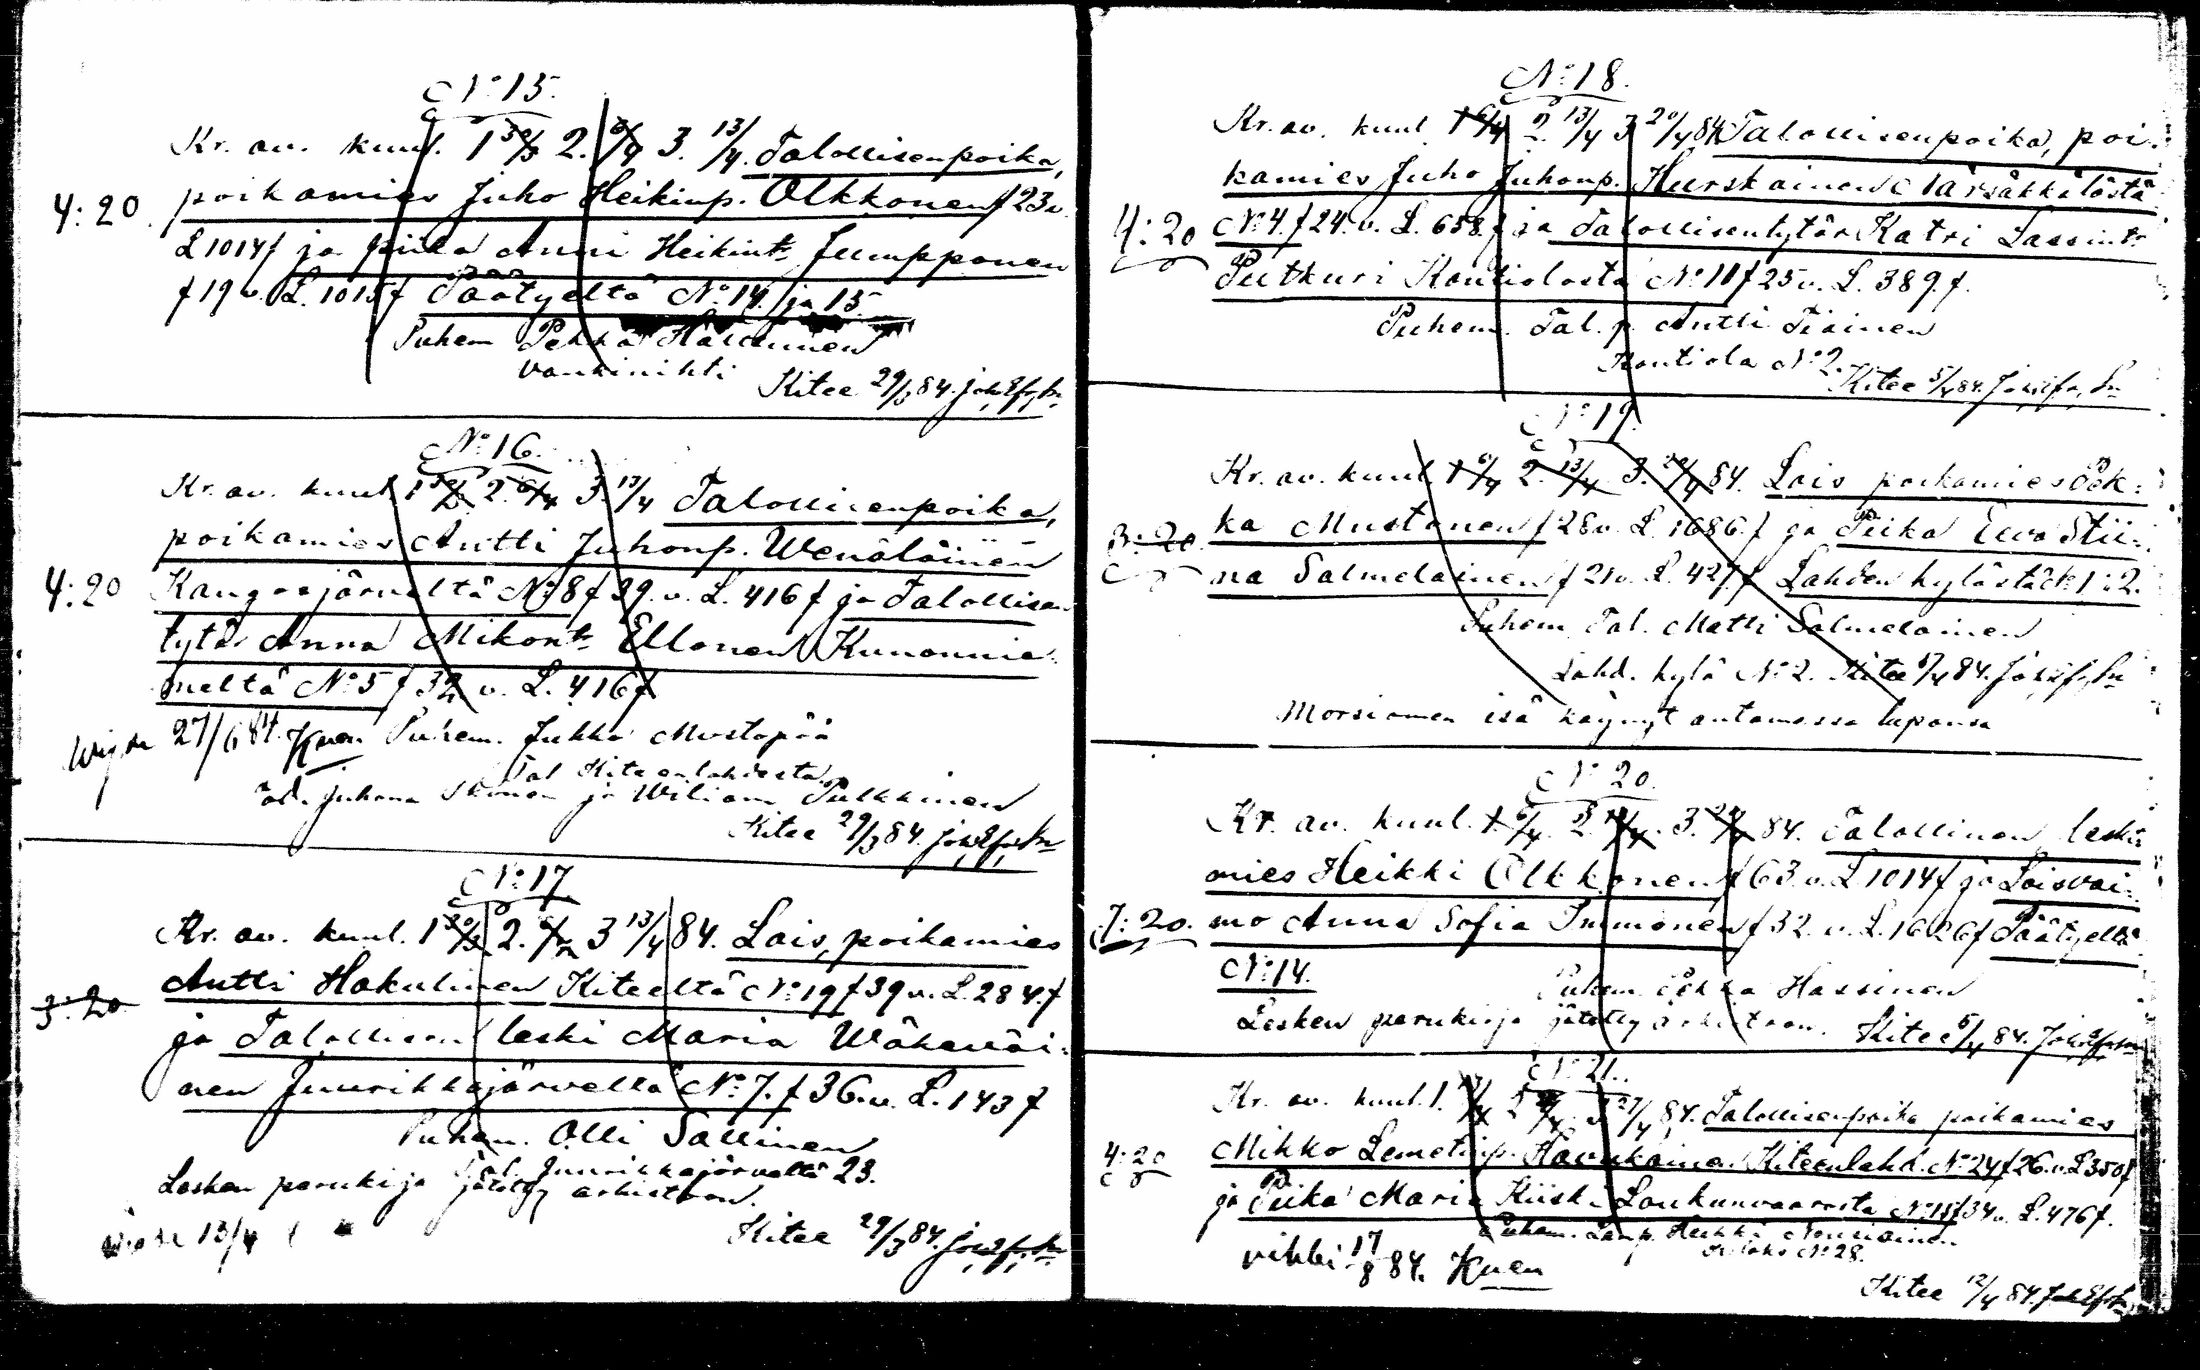 No 15.
Kr. av. kuul. 1 30/3 2. 6/4 3. 13/4. Talollisenpoika,
4:20. poikamies Juho Heikinp. Olkkonen f 23 v.
L 1014 f ja piika Anni Heikint. Jumpponen
f 19 v. L. 1015 f Päätyeltä No 14. ja 15
Puhem Pekka
Vankinihti
Kitee 29/3 84.
No 16.
Kr. av. kuul. 1 30/3 2. 6/4 3. 13/4 Talollisenpoika,
poikamies Antti Juhonp. Wenäläinen
4:20 Kangasjärveltä No 8 f 39. v. L. 416 f ja Talollisen
tytär Anna Mikont. Ellonen Kunonnie-
meltä No 5 f 32 v. L. 416 f
27/6 84. Puhem. Jukka Mustapää
Tal Kiteenlahdesta
tod. Juhana ja Wiliam Pulkkinen
Kitee 29/3 84.
No 17.
Kr. av. kuul. 1 30/3 2. 6/4 3 13/4 84. Lois, poikamies
Antti Hakulinen Kiteeltä No 19 f 39 v. L. 284. f
3:20 ja Talollisen leski Maria Wäkeväi-
nen Juurikkajärveltä No 7. f 36. v. L. 143 f
Puhem. Olli Sallinen
Tal. Juurikkajärveltä 23.
Lesken perukirja jätetty arkistoon.
13/4
Kitee 29/3 84.
No 18.
Kr. av. kuul. 1 6/4 2. 13/4 3 20/4 84 Talollisenpoika, poi-
kamies Juho Juhonp. Hurskainen Närsäkkälästä
4:20 No 4. f 24. v. L. 658. f ja Talollisentytär Katri Lassint.
Putkuri Kontiolasta No 11 f 25 v. L. 389. f.
Puhem. Tal. p. Antti Tiainen
Kontiola No 2.
Kitee 5/4 84.
No 19.
Kr. av. kuul. 1 6/4 2. 13/4 3. 20/4 84. Lois poikamies Pek-
3:20. ka Mustonen f 28 v. L. 1686. f ja Piika Eeva Stii-
na Salmelainen f 21 v. L. 427. f Lahden kylästä No 1:2.
Puhem. Tal. Matti Salmelainen
Lahd. kylä No 2. Kitee 5/4 84.
Morsiamen isä käynyt antamassa lupansa
No 20.
Kr. av. kuul. 1. 6/4. 2. 13/4. 3. 20/4 84. Talollinen, leski-
mies Heikki Olkkonen f 63. v. L 1014 f ja Loisvai-
7:20. mo Anna Sofia Immonen f 32 v. L. 1626 f Päätyeltä
No 14.
Puhem. Pekka Hassinen
Lesken perukirja jätetty arkistoon. Kitee 5/4 84.
No 21.
Kr. av. kuul. 1. 13/4 2 20/4 3 27/4 84. Talollisenpoika poikamies
4:20 Mikko Lemetinp. Havukainen Kiteenlahd. No 24 f 26. v. L 350 f
ja Piika Maria Kiiski Loukunvaarasta No 11 f 34 v. L. 476 f.
Puhem. Heikki Nousiainen
No 28.
vihki 17/8 84.
Kitee 12/4 84.